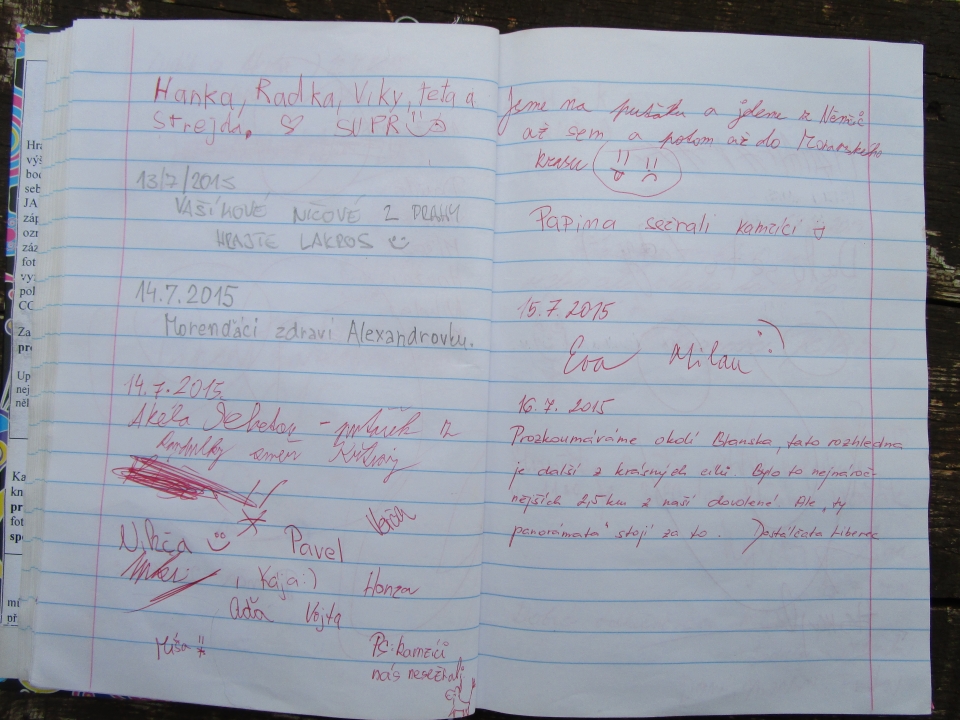 Hanka, Radka, Viky, teta a
strejda. SUPR
13/7/2015
VAŠÍKOVÉ NIČOVÉ Z PRAHY
HRAJTE LAKROS
14.7.2015
Morenďáci zdraví Alexandrovku.
14.7.2015
Akéla
směr Křtiny
Nikča Pavel
Kája:) Honza
Aďa Vojta
Míša
PS: Kamzíci
nás nesežrali
Jsme na puťáku a jdeme z
až sem a potom až do Moravského
krasu
Papina sežrali kamzíci
15.7.2015
Eva Milan
16.7.2015
Prozkoumáváme okolí Blanska, tato rozhledna
je další z krásných cílů. Bylo to nejnároč-
nějších 2,5km z naší dovolené. Ale „ty
panorámata" stojí za to. Dostálčata Liberec
Hra
výš
bod
seb
JA
záp
ozn
záz
fot
vy
pol
CC
Za
pro
Up
nej
něl
Ka
kn
pro
fot
spo
mí
př